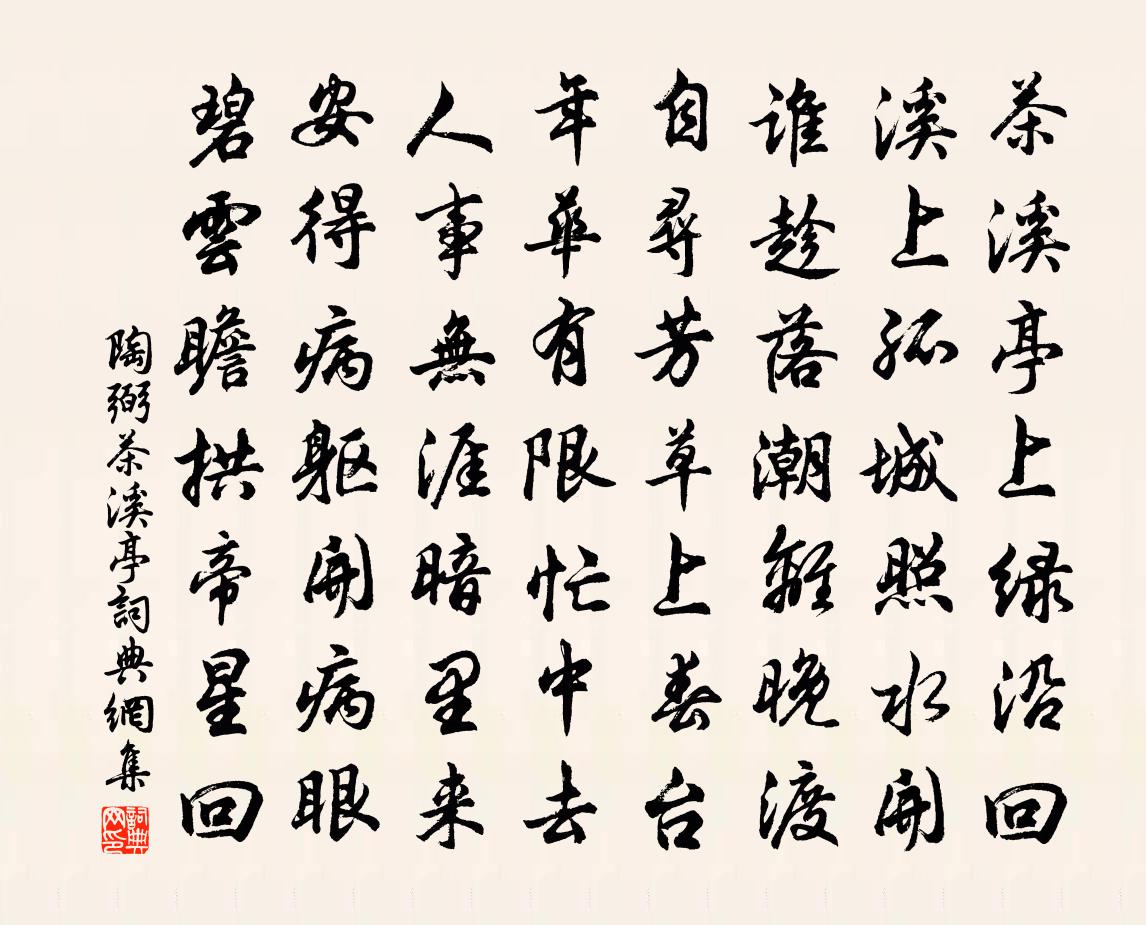 茶溪亭上绿沿回
溪上孤城照水開
谁趁落潮離晚渡
自尋芳草上春台
年華有限忙中去
人事無涯暗里来
安得病躯開病眼
碧雲瞻拱帝星回
陶弼茶溪亭詞典網集
詞典网印